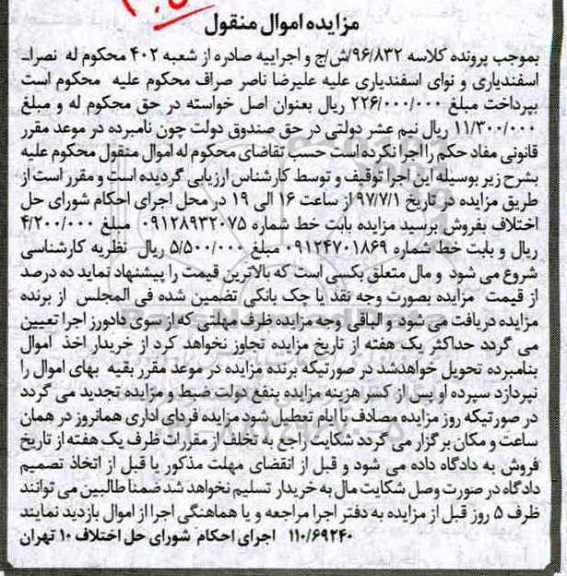 مزایده اموال منقول
بموجب پرونده کلاسه ۹۶/۸۳۲/ش/ج و اجراییه صادره از شعبه ۴۰۲ محکوم له نصرا...
اسفندیاری و نوای اسفندیاری علیه علیرضا ناصر صراف محکوم علیه محکوم است
بپرداخت مبلغ ۲۲۶/۰۰۰/۰۰۰ ریال بعنوان اصل خواسته در حق محکوم له و مبلغ
۱۱/۳۰۰/۰۰۰ ریال نیم عشر دولتی در حق صندوق دولت چون نامبرده در موعد مقرر
قانونی مفاد حکم را اجرا نکرده است حسب تقاضای محکوم له اموال منقول محکوم علیه
بشرح زیر بوسیله این اجرا توقیف و توسط کارشناس ارزیابی گردیده است و مقرر است از
طریق مزایده در تاریخ ۹۷/۷/۱ از ساعت ۱۶ الی ۱۹ در محل اجرای احکام شورای حل
اختلاف بفروش برسید مزایده بابت خط شماره ۰۹۱۲۸۹۳۲۰۷۵ مبلغ ۴/۲۰۰/۰۰۰
ریال و بابت خط شماره ۰۹۱۲۴۷۰۱۸۶۹ مبلغ ۵/۵۰۰/۰۰۰ ریال نظریه کارشناسی
شروع می شود و مال متعلق بکسی است که بالاترین قیمت را پیشنهاد نماید ده درصد
از قیمت مزایده بصورت وجه نقد یا چک بانکی تضمین شده فی المجلس از برنده
مزایده دریافت می شود و الباقی وجه مزایده ظرف مهلتی که از سوی دادورز اجرا تعیین
می گردد حداکثر یک هفته از تاریخ مزایده تجاوز نخواهد کرد از خریدار اخذ اموال
بنامبرده تحویل خواهدشد در صورتیکه برنده مزایده در موعد مقرر بقیه بهای اموال را
نپردازد سپرده او پس از کسر هزینه مزایده بنفع دولت ضبط و مزایده تجدید می گردد
در صورتیکه روز مزایده مصادف با ایام تعطیل شود مزایده فردای اداری همانروز در همان
ساعت و مکان برگزار می گردد شکایت راجع به تخلف از مقررات ظرف یک هفته از تاریخ
فروش به دادگاه داده می شود و قبل از انقضای مهلت مذکور یا قبل از اتخاذ تصمیم
دادگاه در صورت وصل شکایت مال به خریدار تسلیم نخواهد شد ضمنا طالبین می توانند
ظرف ۵ روز قبل از مزایده به دفتر اجرا مراجعه و یا هماهنگی اجرا از اموال بازدید نمایند
۱۱۰/۶۹۲۴۰ اجرای احکام شورای حل اختلاف ۱۰ تهران